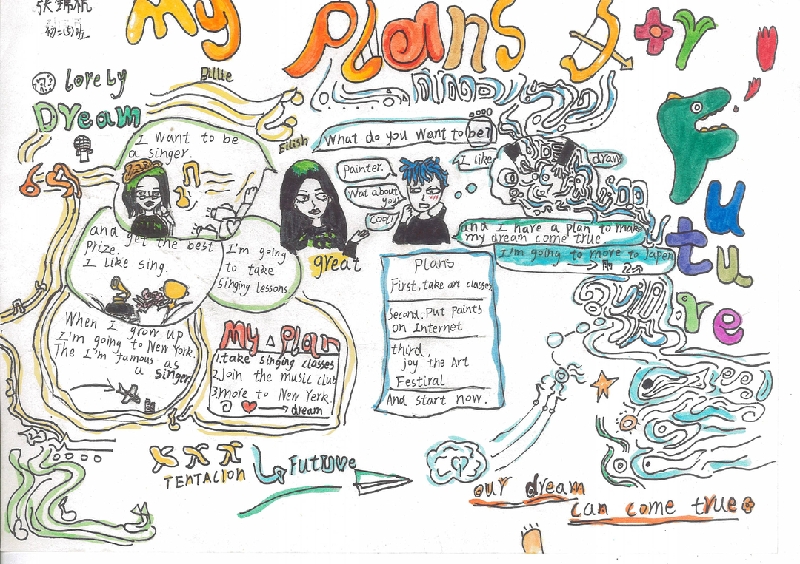 My Plans for
Future
Lovely
Dream
Billie
Eilish
I want to be
a singer.
and get the best
prize.
I like sing.
I'm going
to take
singing lessons
When I grow up
I'm going to New York.
The I'm famous as
a singer
My Plan
1.take singing classes
2.Join the music club
3.more to New York.
dream
great
What do you want to be?
Painter.
Wat about
you?
Cool!
I like
draw
and I have a plan to make
my dream come true
I'm going to more to Japen
Plans
First, take art classes
Second. Put paints
on Internet.
third,
joy the Art
Festiral
And start now.
XXX
TENTACION
Future
our dream
can come true